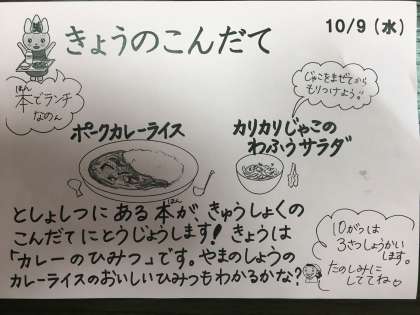 きょうのこんだて
10/9(水)
本でランチ
ほん
なのん
じゃこをまぜてから
もりつけよう!!
ポークカレーライス
カリカリじゃこの
わふうサラダ
としょしつにある本が、きゅうしょくの
ほん
こんだてにとうじょうします!きょうは
「カレーのひみつ」です。やまのしょうの
カレーライスのおいしいひみつもわかるかな?
10がつは
3さつしょうかい
します。
たのしみに
しててね